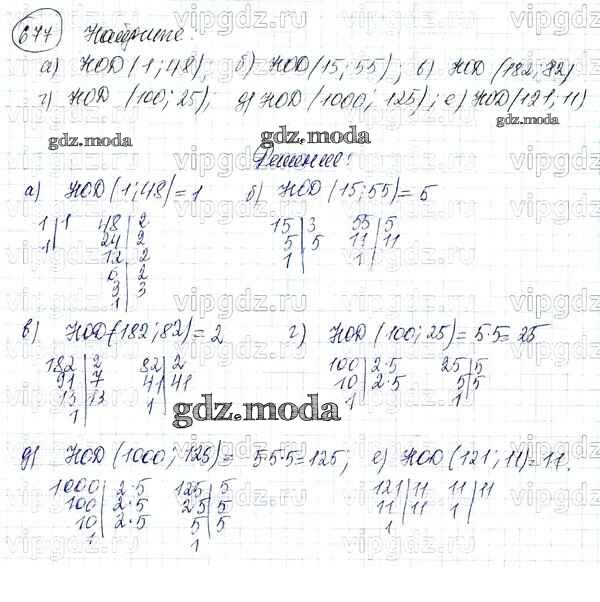 677 Найдите:
а) НОД (1; 48); б) НОД (15; 55); в) НОД (182; 82)
г) НОД (100; 25); д) НОД (1000; 125); е) НОД (121; 11)
gdz.moda gdz.moda
Решение:
а) НОД (1; 48) = 1 б) НОД (15; 55) = 5
1 | 1 48 | 2 15 | 3 55 | 5
1 | 24 | 2 5 | 5 11 | 11
12 | 2 1 | 1 |
6 | 2
3 | 3
1 |
в) НОД (182; 82) = 2 г) НОД (100; 25) = 5·5 = 25
182 | 2 82 | 2 100 | 2·5 25 | 5
91 | 7 41 | 41 10 | 2·5 5 | 5
13 | 13 1 | 1 | 1 |
1 |
gdz.moda
д) НОД (1000; 125) = 5·5·5 = 125; е) НОД (121; 11) = 11.
1000 | 2·5 125 | 5 121 | 11 11 | 11
100 | 2·5 25 | 5 11 | 11 1 |
10 | 2·5 5 | 5 1 |
1 | 1
vipgdz.ru